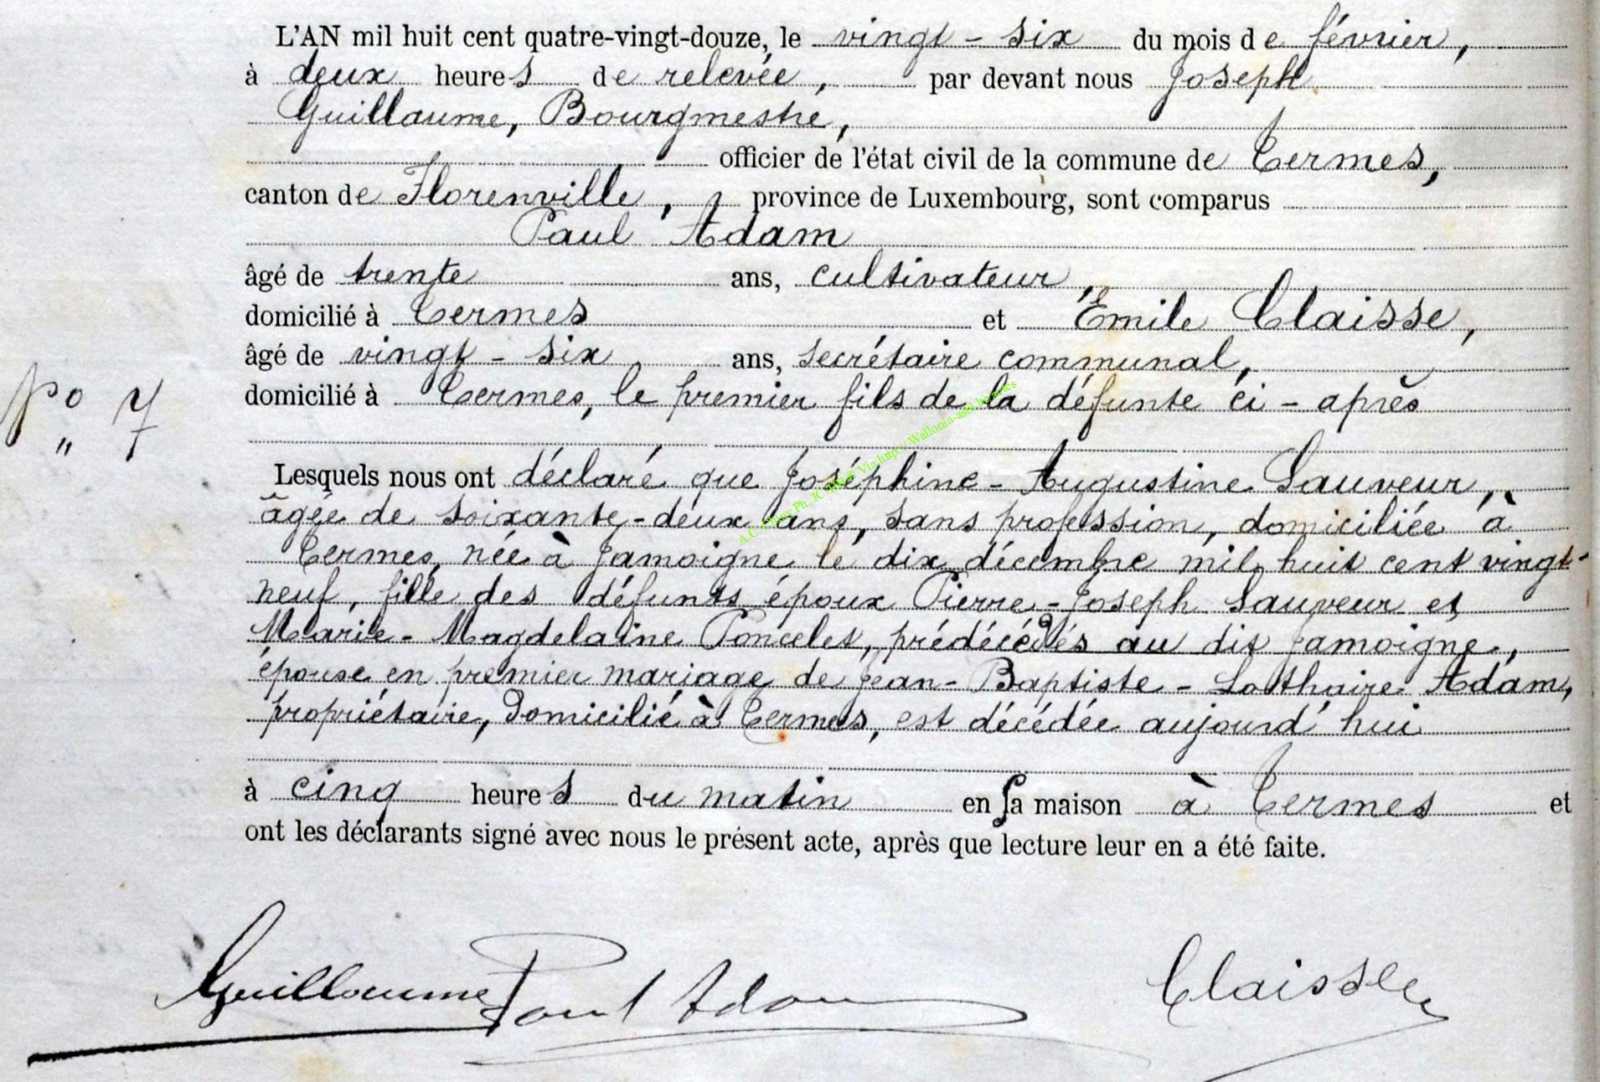 L'AN mil huit cent quatre-vingt-douze, le vingt-six du mois de février,
à deux heures de relevée, par devant nous Joseph
Guillaume, Bourgmestre,
officier de l'état civil de la commune de Termes,
canton de Florenville, province de Luxembourg, sont comparus
Paul Adam
âgé de trente ans, cultivateur,
domicilié à Termes et Émile Claisse,
âgé de vingt-six ans, secrétaire communal,
N° 7 domicilié à Termes, le premier fils de la défunte ci-après
Lesquels nous ont déclaré que Joséphine-Augustine Sauveur,
âgée de soixante-deux ans, sans profession, domiciliée à
Termes, née à Jamoigne le dix décembre mil huit cent vingt-
neuf, fille des défunts époux Pierre-Joseph Sauveur et
Marie-Magdelaine Poncelet, prédécédés au dit Jamoigne,
épouse en premier mariage de Jean-Baptiste-Lothaire Adam,
propriétaire, domicilié à Termes, est décédée aujourd'hui
à cinq heures du matin en sa maison à Termes et
ont les déclarants signé avec nous le présent acte, après que lecture leur en a été faite.
Guillaume Paul Adam Claisse